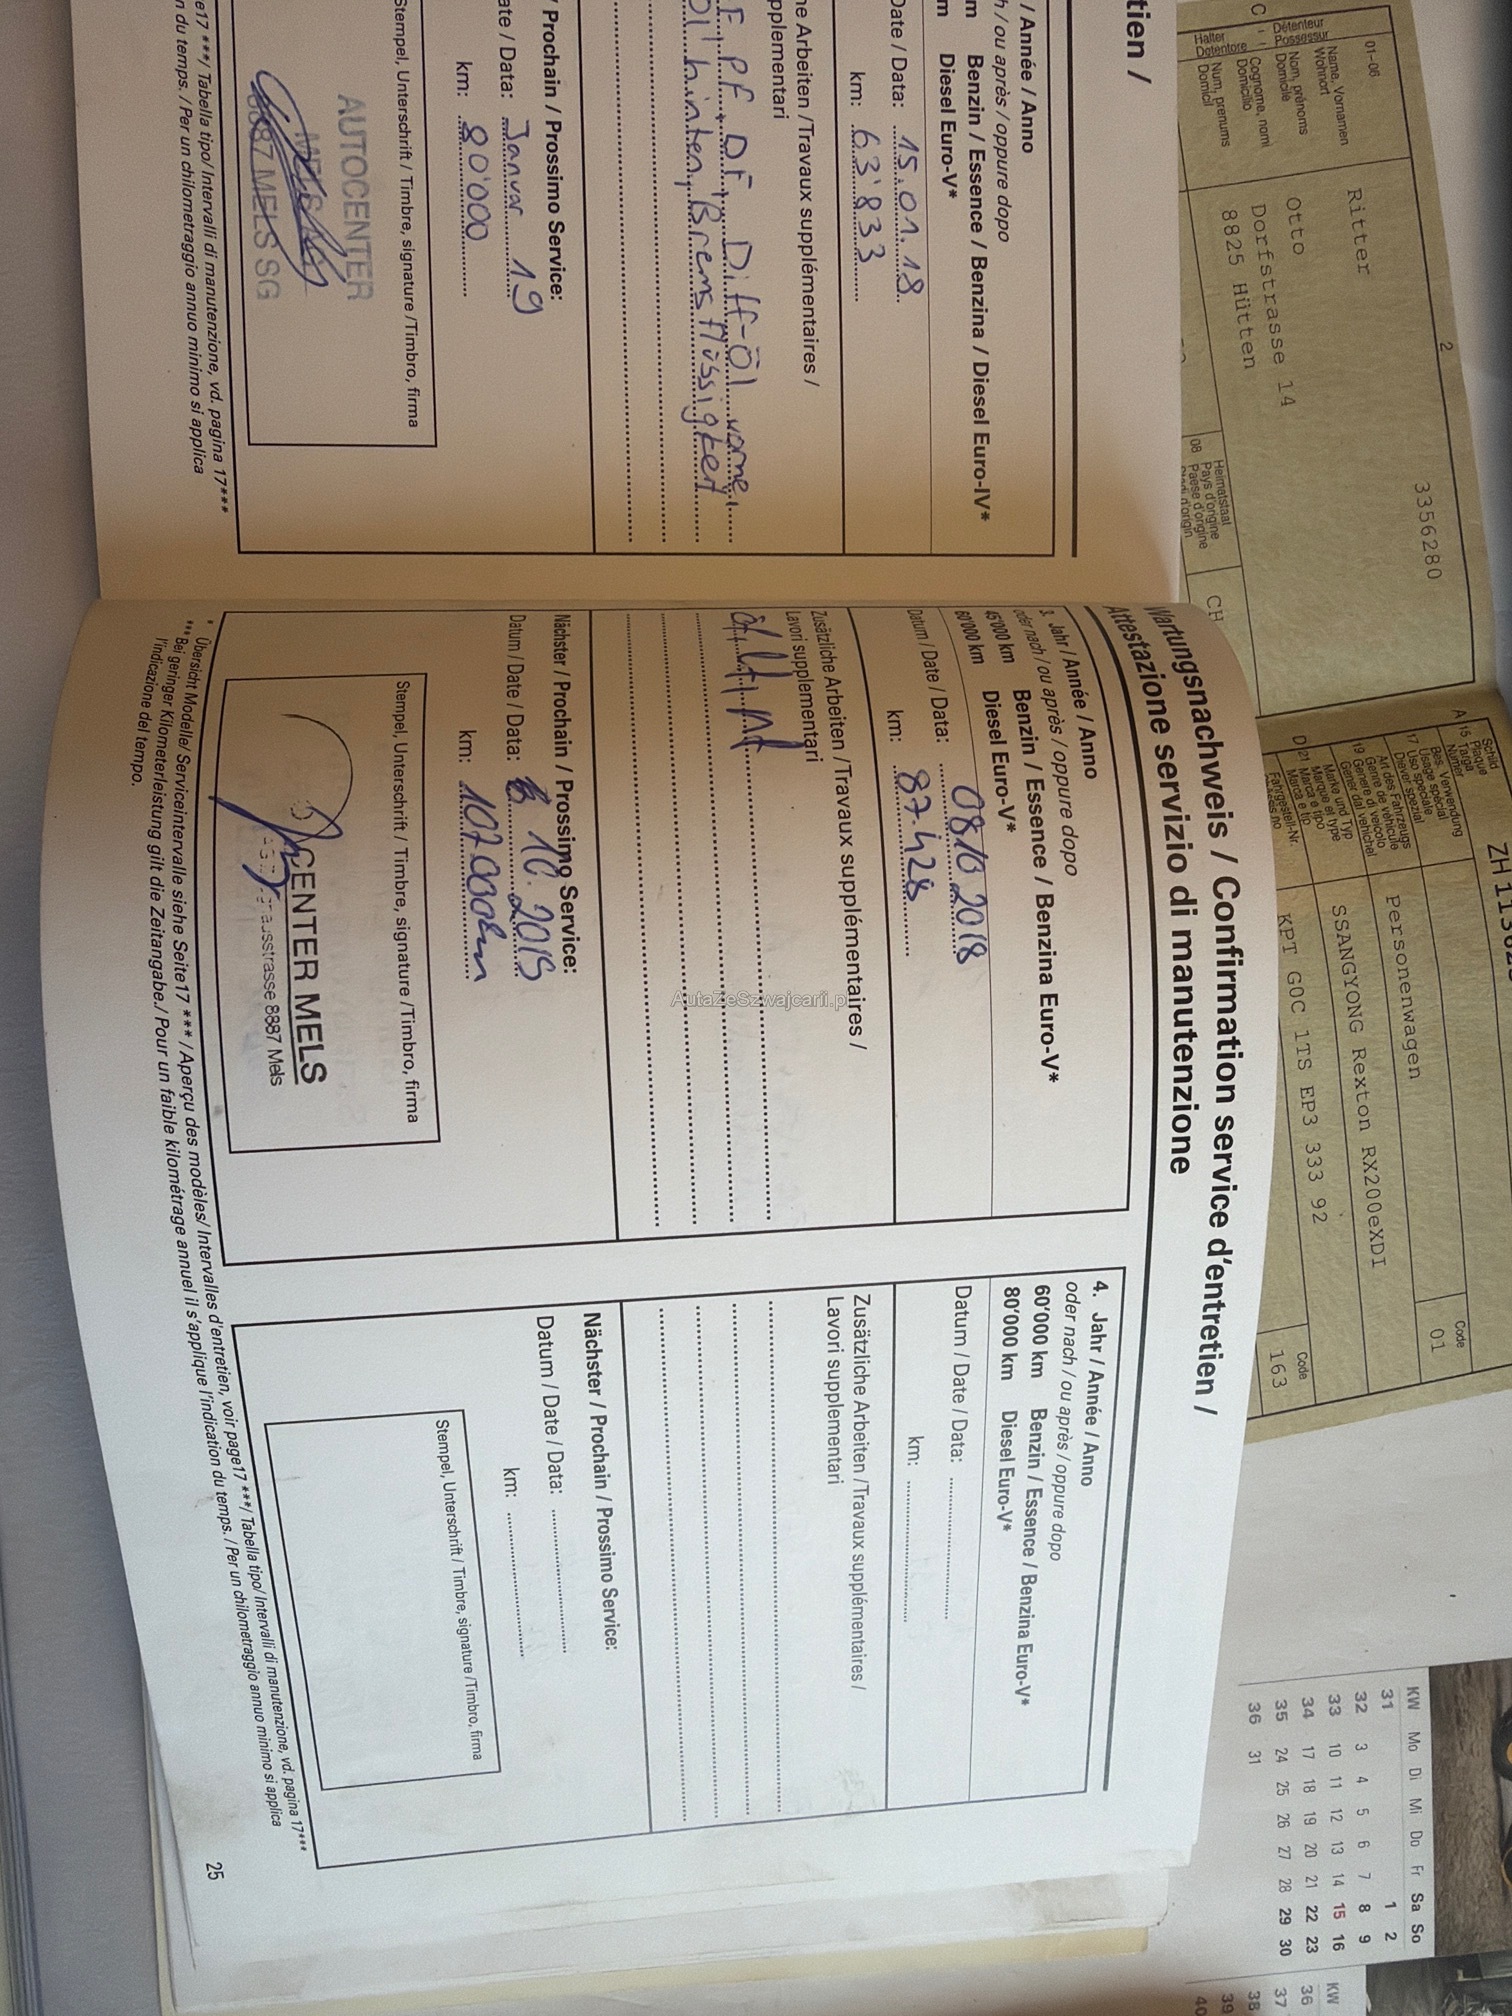 tien /
/ Année / Anno
h / ou après / oppure dopo
m Benzin / Essence / Benzina / Diesel Euro-IV*
m Diesel Euro-V*
Date / Data: 15.01.18
km: 63'833
he Arbeiten / Travaux supplémentaires /
pplementari
F, PF, DF, Diff-Öl vorne,
hinten, Bremsflüssigkeit
/ Prochain / Prossimo Service:
ate / Data: Januar 19
km: 80'000
Stempel, Unterschrift / Timbre, signature / Timbro, firma
AUTOCENTER
8887 MELS SG
e17 ***/ Tabella tipo/ Intervalli di manutenzione, vd. pagina 17***
n du temps. / Per un chilometraggio annuo minimo si applica
Wartungsnachweis / Confirmation service d'entretien /
Attestazione servizio di manutenzione
3. Jahr / Année / Anno
oder nach / ou après / oppure dopo
45'000 km Benzin / Essence / Benzina Euro-V*
60'000 km Diesel Euro-V*
Datum / Date / Data: 08.10.2018
km: 87428
Zusätzliche Arbeiten / Travaux supplémentaires /
Lavori supplementari
Nächster / Prochain / Prossimo Service:
Datum / Date / Data: 10.2019
km: 107000km
Stempel, Unterschrift / Timbre, signature / Timbro, firma
CENTER MELS
8887 Mels
4. Jahr / Année / Anno
oder nach / ou après / oppure dopo
60'000 km Benzin / Essence / Benzina Euro-V*
80'000 km Diesel Euro-V*
Datum / Date / Data:
km:
Zusätzliche Arbeiten / Travaux supplémentaires /
Lavori supplementari
Nächster / Prochain / Prossimo Service:
Datum / Date / Data:
km:
Stempel, Unterschrift / Timbre, signature / Timbro, firma
* Übersicht Modelle/ Serviceintervalle siehe Seite17 *** / Aperçu des modèles/ Intervalles d'entretien, voir page17 ***/ Tabella tipo/ Intervalli di manutenzione, vd. pagina 17***
*** Bei geringer Kilometerleistung gilt die Zeitangabe./ Pour un faible kilométrage annuel il s'applique l'indication du temps. / Per un chilometraggio annuo minimo si applica
l'indicazione del tempo.
25
AutaZeSzwajcarii.pl
2
3356280
01-06
C
Détenteur
Possessur
Halter
Detentore
Name, Vornamen
Wohnort
Nom, prénoms
Domicile
Cognome, nomi
Domicilio
Num, prenums
Domicil
Ritter
Otto
Dorfstrasse 14
8825 Hütten
08
Heimatstaat
Pays d'origine
Paese d'origine
CH
A
15
Schild
Plaque
Targa
Numer
17
Bes. Verwendung
Usage spécial
Uso speciale
Diever spezial
19
Art des Fahrzeugs
Genre de véhicule
Genere di veicolo
Gener dal vehichel
Personenwagen
Code
01
D 21
Marke und Typ
Marque et type
Marca e tipo
Marca e tip
SSANGYONG Rexton RX200eXDI
Fahrgestell-Nr.
KPT G0C 1TS EP3 333 92
Code
163
KW Mo Di Mi Do Fr Sa So
31 1 2
32 3 4 5 6 7 8 9
33 10 11 12 13 14 15 16
34 17 18 19 20 21 22 23
35 24 25 26 27 28 29 30
36 31
KW
36
37
38
39
40